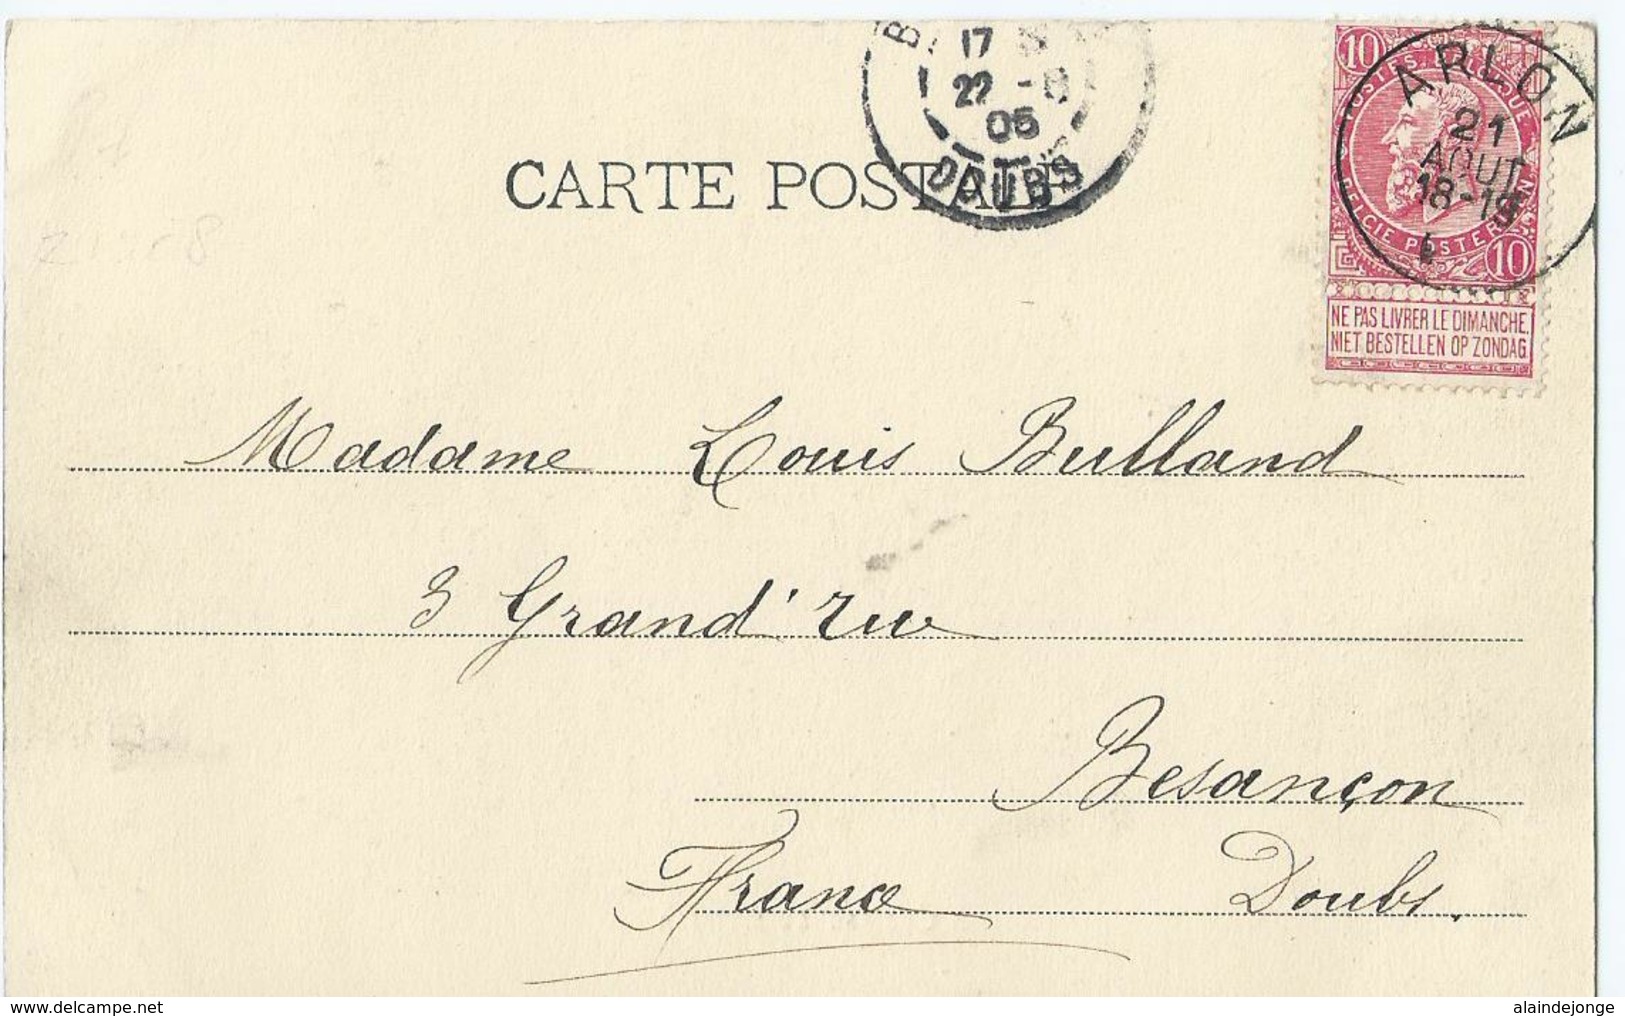 B
17
22 - 8
05
DOUBS
CARTE POSTALE
10
POSTES. BELGIQUE
ARLON
21
AOUT
18-19
BELGIE POSTERIJEN
10
NE PAS LIVRER LE DIMANCHE.
NIET BESTELLEN OP ZONDAG.
Madame Louis Bulland
3 Grand' rue
Besançon
France Doubs.
www.delcampe.net
alaindejonge